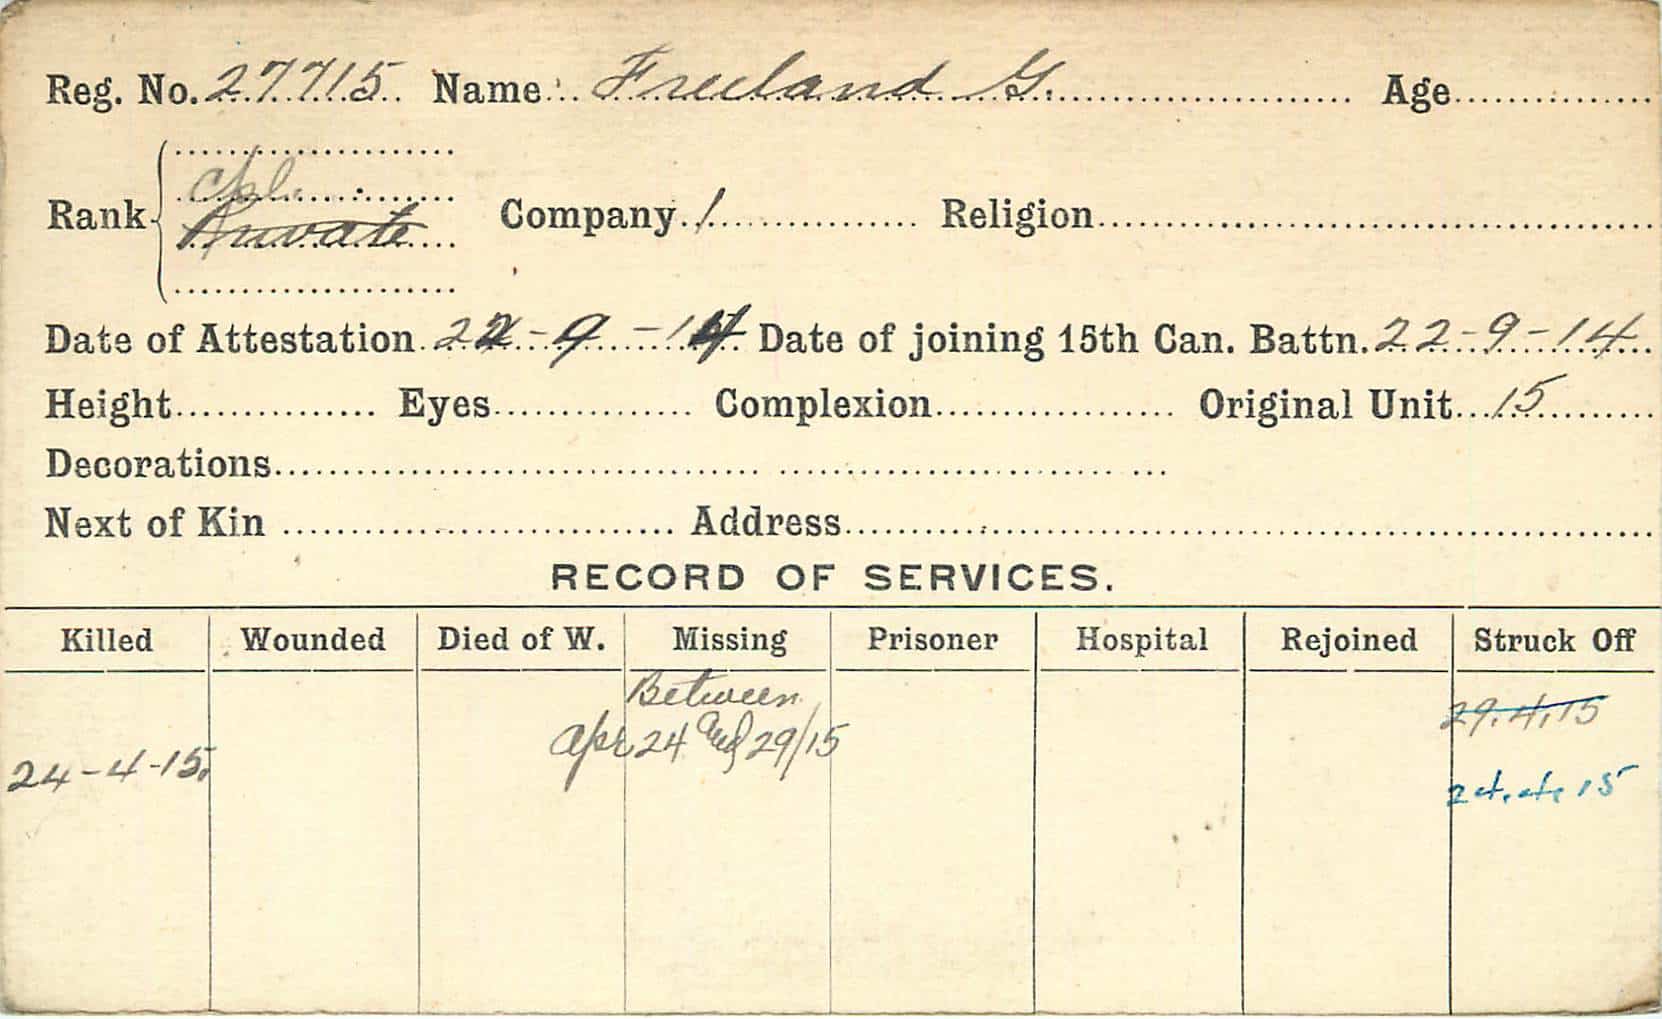 Reg. No. 27715 Name Freeland G. Age
Cpl.
Rank Private Company 1 Religion
Date of Attestation 22-9-14 Date of joining 15th Can. Battn. 22-9-14
Height Eyes Complexion Original Unit 15
Decorations
Next of Kin Address
RECORD OF SERVICES.
Killed Wounded Died of W. Missing Prisoner Hospital Rejoined Struck Off
Between 29.4.15
24-4-15. Apr 24 and 29/15 24.4.15